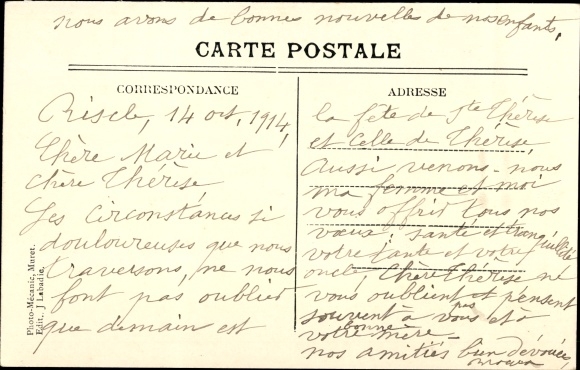 nous avons de bonnes nouvelles de nos enfants.
CARTE POSTALE
CORRESPONDANCE
Riscle, 14 oct. 1914,
Chère Marie et
chère Thérèse
Les circonstances si
douloureuses que nous
traversons, ne nous
font pas oublier
que demain est
ADRESSE
la fête de Ste Thérèse
et celle de Thérèse,
Aussi venons-nous
ma femme et moi
vous offrir tous nos
vœux: santé et tranquillité
votre tante et votre
oncle, chère Thérèse ne
vous oublient pas et pensent
souvent à vous et à
votre bonne mère_
nos amitiés bien dévouées,
Photo-Mécanic, Muret.
Edit., J Labadie,